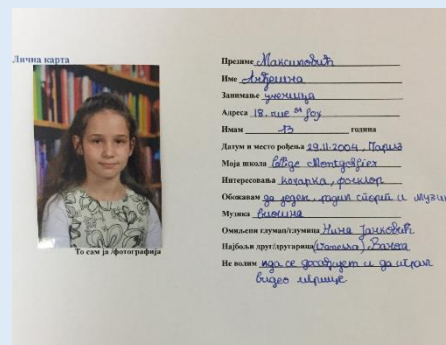 Лична карта
Презиме Максимовић
Име
Занимање ученица
Адреса 18. rue
Имам 13 година
Датум и место рођења 29.11.2004, Париз
Моја школа Collège Montgolfier
Интересовања кошарка, фолклор
Обожавам да једем, радим спорт и музику
Музика виолина
Омиљени глумац/глумица Нина Јанковић
Најбољи друг/другарица (Vanessa), Ванеса
Не волим када се досађујем и да играм
видео игрице
То сам ја /фотографија